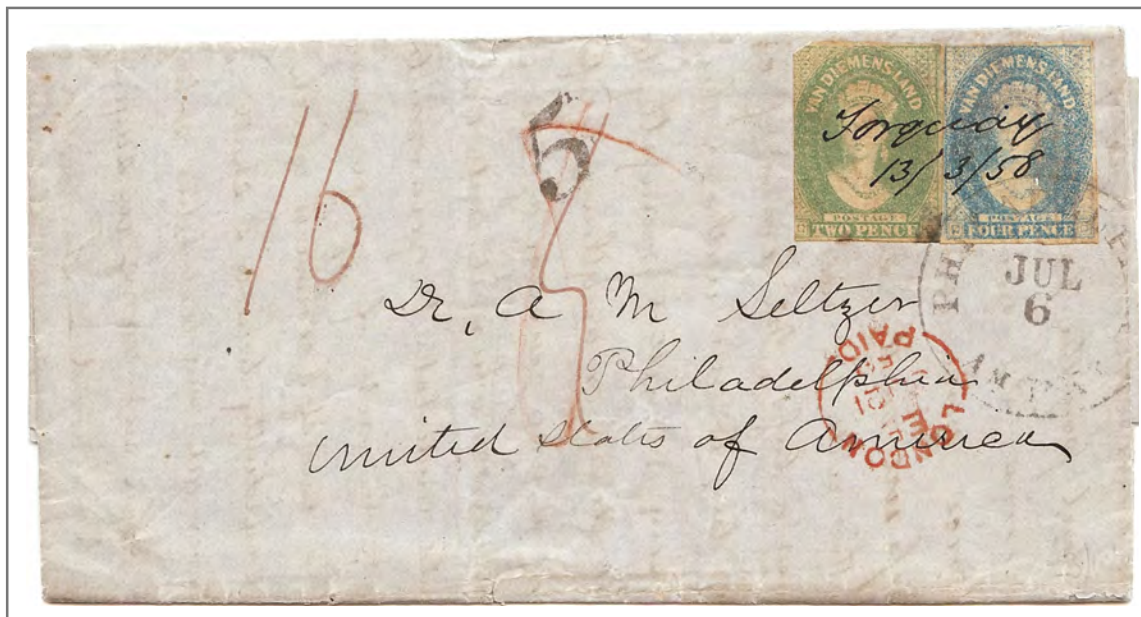 16
5
VAN DIEMENS LAND
POSTAGE
TWO PENCE
VAN DIEMENS LAND
POSTAGE
FOUR PENCE
Torquay
13/3/58
JUL
6
Dr, A M Seltzer
Philadelphia
United States of America
LONDON
PAID